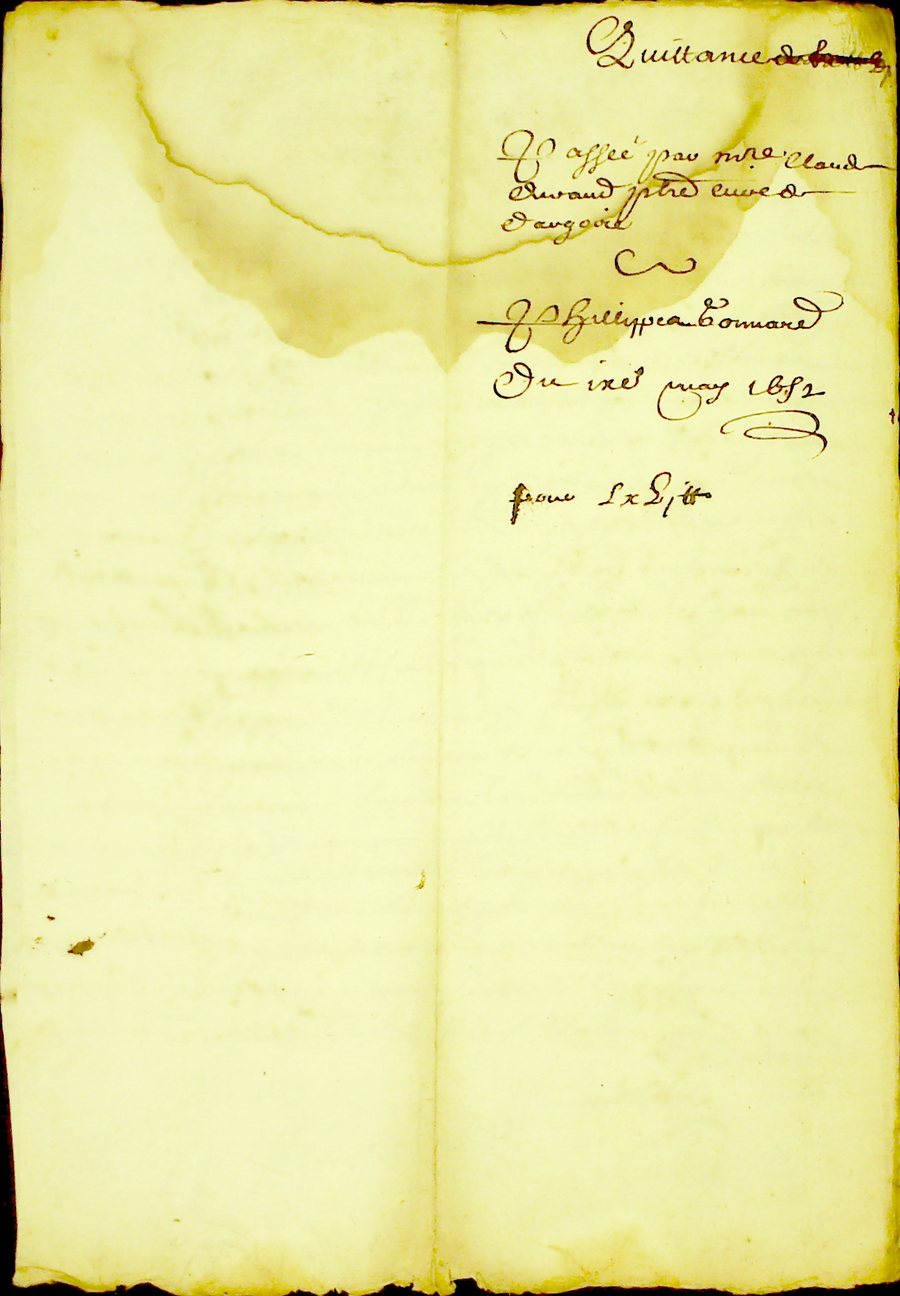 Quittance
Passée par mre Claude
Durand pbre curé de
Dargoire
Philippe a Bonnard
Du may 1652
pour